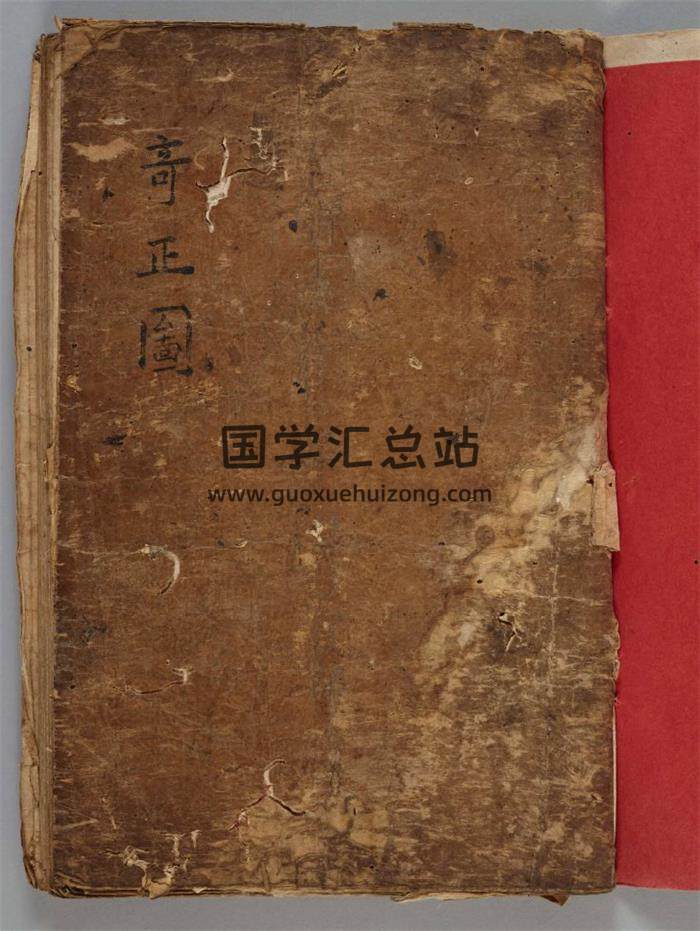 奇正圖
国学汇总站
www.guoxuehuizong.com